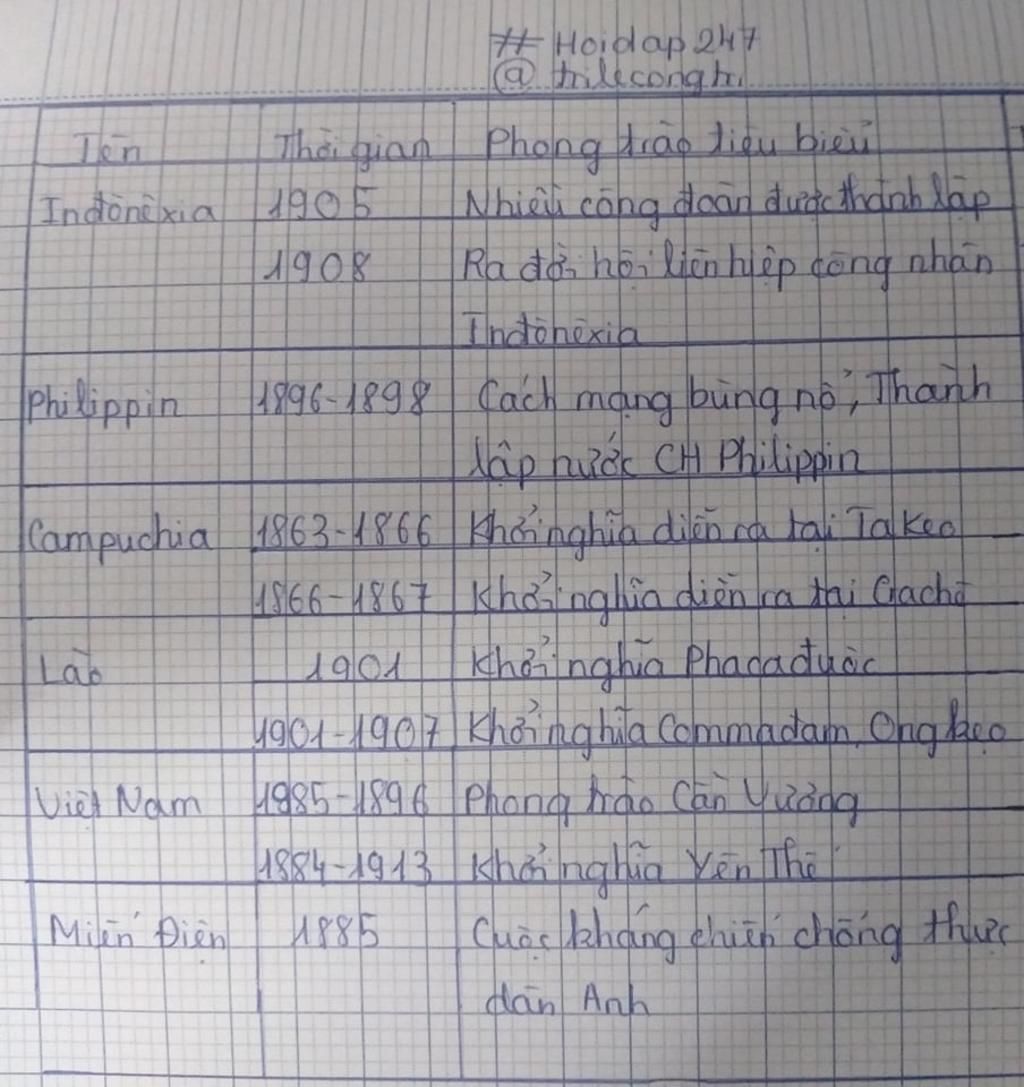 # Hoidap247
@trilecongtri
Tên Thời gian Phong trào tiêu biểu
Inđônêxia 1905 Nhiều công đoàn được thành lập
1908 Ra đời hội liên hiệp công nhân
Inđônêxia
Philippin 1896-1898 Cách mạng bùng nổ, Thành
lập nước CH Philippin
Campuchia 1863-1866 Khởi nghĩa diễn ra tại Takeo
1866-1867 Khởi nghĩa diễn ra tại Crachê
Lào 1901 Khởi nghĩa Phacađuốc
1901-1907 Khởi nghĩa Commadam, Ong kẹo
Việt Nam 1985-1896 Phong trào Cần Vương
1884-1913 Khởi nghĩa Yên Thế
Miến Điện 1885 Cuộc kháng chiến chống thực
dân Anh